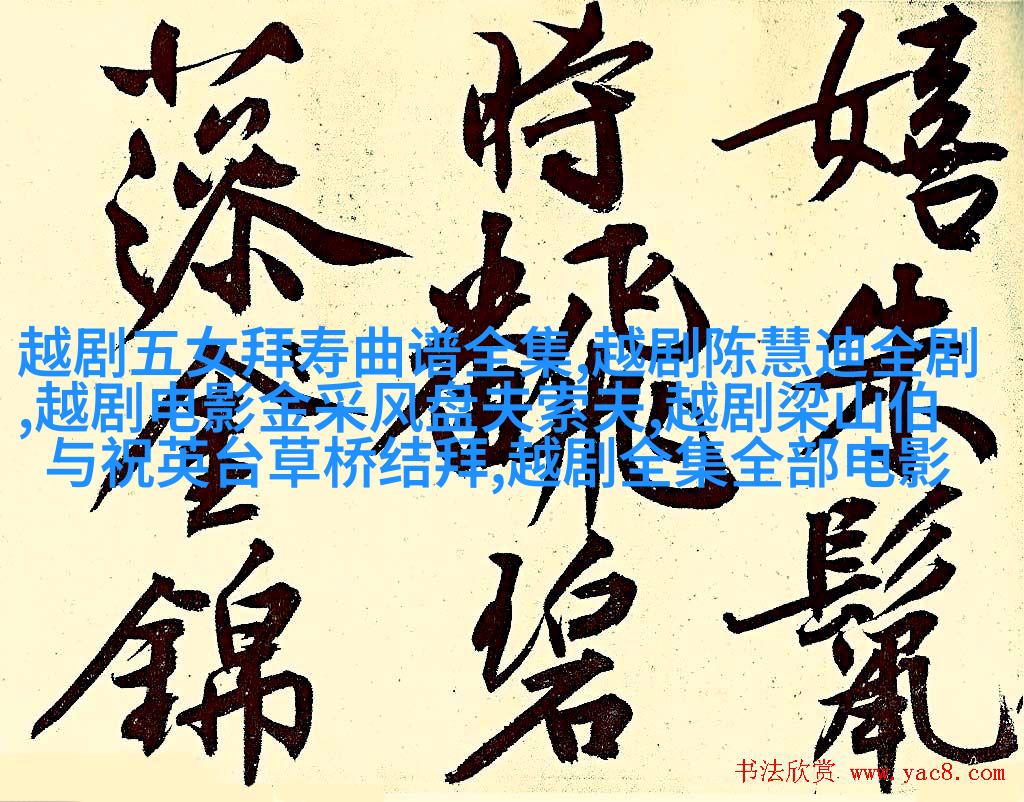 嬉朱鬣
時飜碧
藻金錦
越剧五女拜寿曲谱全集,越剧陈慧迪全剧
,越剧电影金采风盘夫索夫,越剧梁山伯
与祝英台草桥结拜,越剧全集全部电影
书法欣赏 www.yac8.com